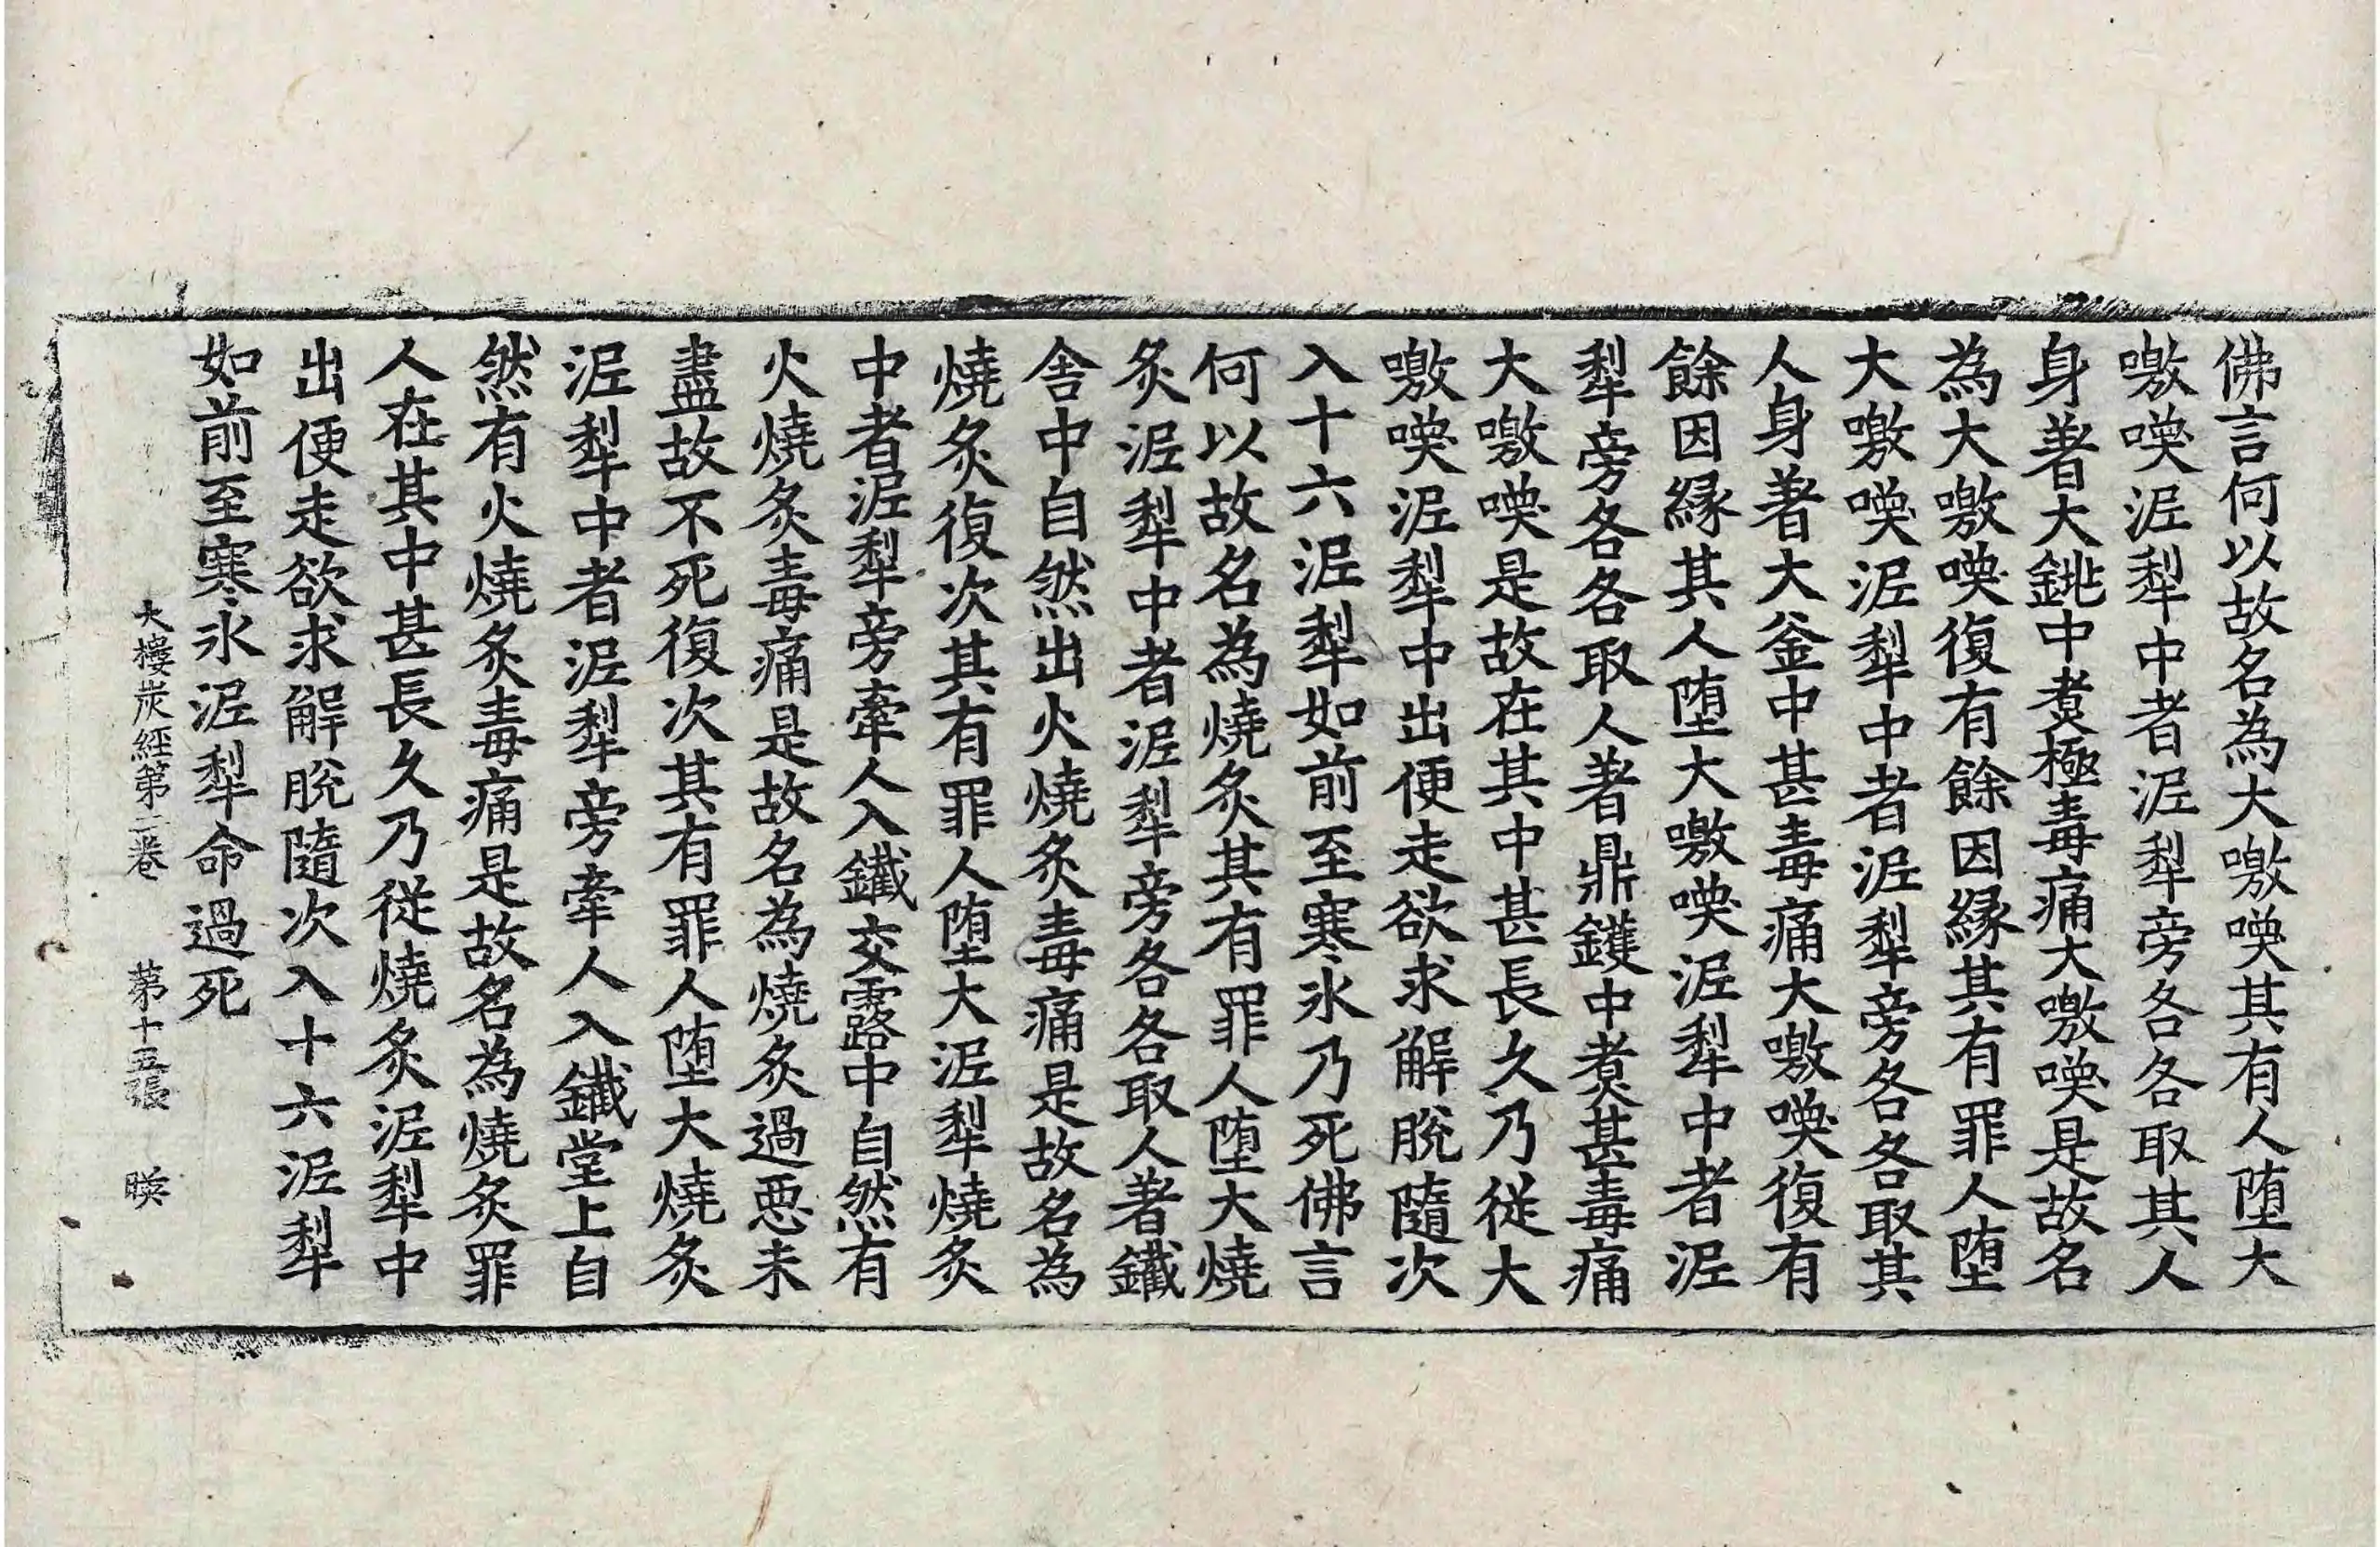 佛言何以故名為大噭㗛其有人堕大
噭㗛泥犁中者泥犁旁各各取其人
身著大銚中煑極毒痛大噭㗛是故名
為大噭㗛復有餘因縁其有罪人堕
大噭㗛泥犁中者泥犁旁各各取其
人身著大釜中甚毒痛大噭㗛復有
餘因縁其人堕大噭㗛泥犁中者泥
犁旁各各取人著鼎鑊中煑甚毒痛
大噭㗛是故在其中甚長久乃従大
噭㗛泥犁中出便走欲求解脫隨次
入十六泥犁如前至寒氷乃死佛言
何以故名為燒炙其有罪人堕大燒
炙泥犁中者泥犁旁各各取人著鐵
舎中自然出火燒炙毒痛是故名為
燒炙復次其有罪人堕大泥犁燒炙
中者泥犁旁牽人入鐵交露中自然有
火燒炙毒痛是故名為燒炙過惡未
盡故不死復次其有罪人堕大燒炙
泥犁中者泥犁旁牽人入鐵堂上自
然有火燒炙毒痛是故名為燒炙罪
人在其中甚長久乃従燒炙泥犁中
出便走欲求解脫隨次入十六泥犁
如前至寒氷泥犁命過死
大樓炭經第二卷 苐十五張 暎